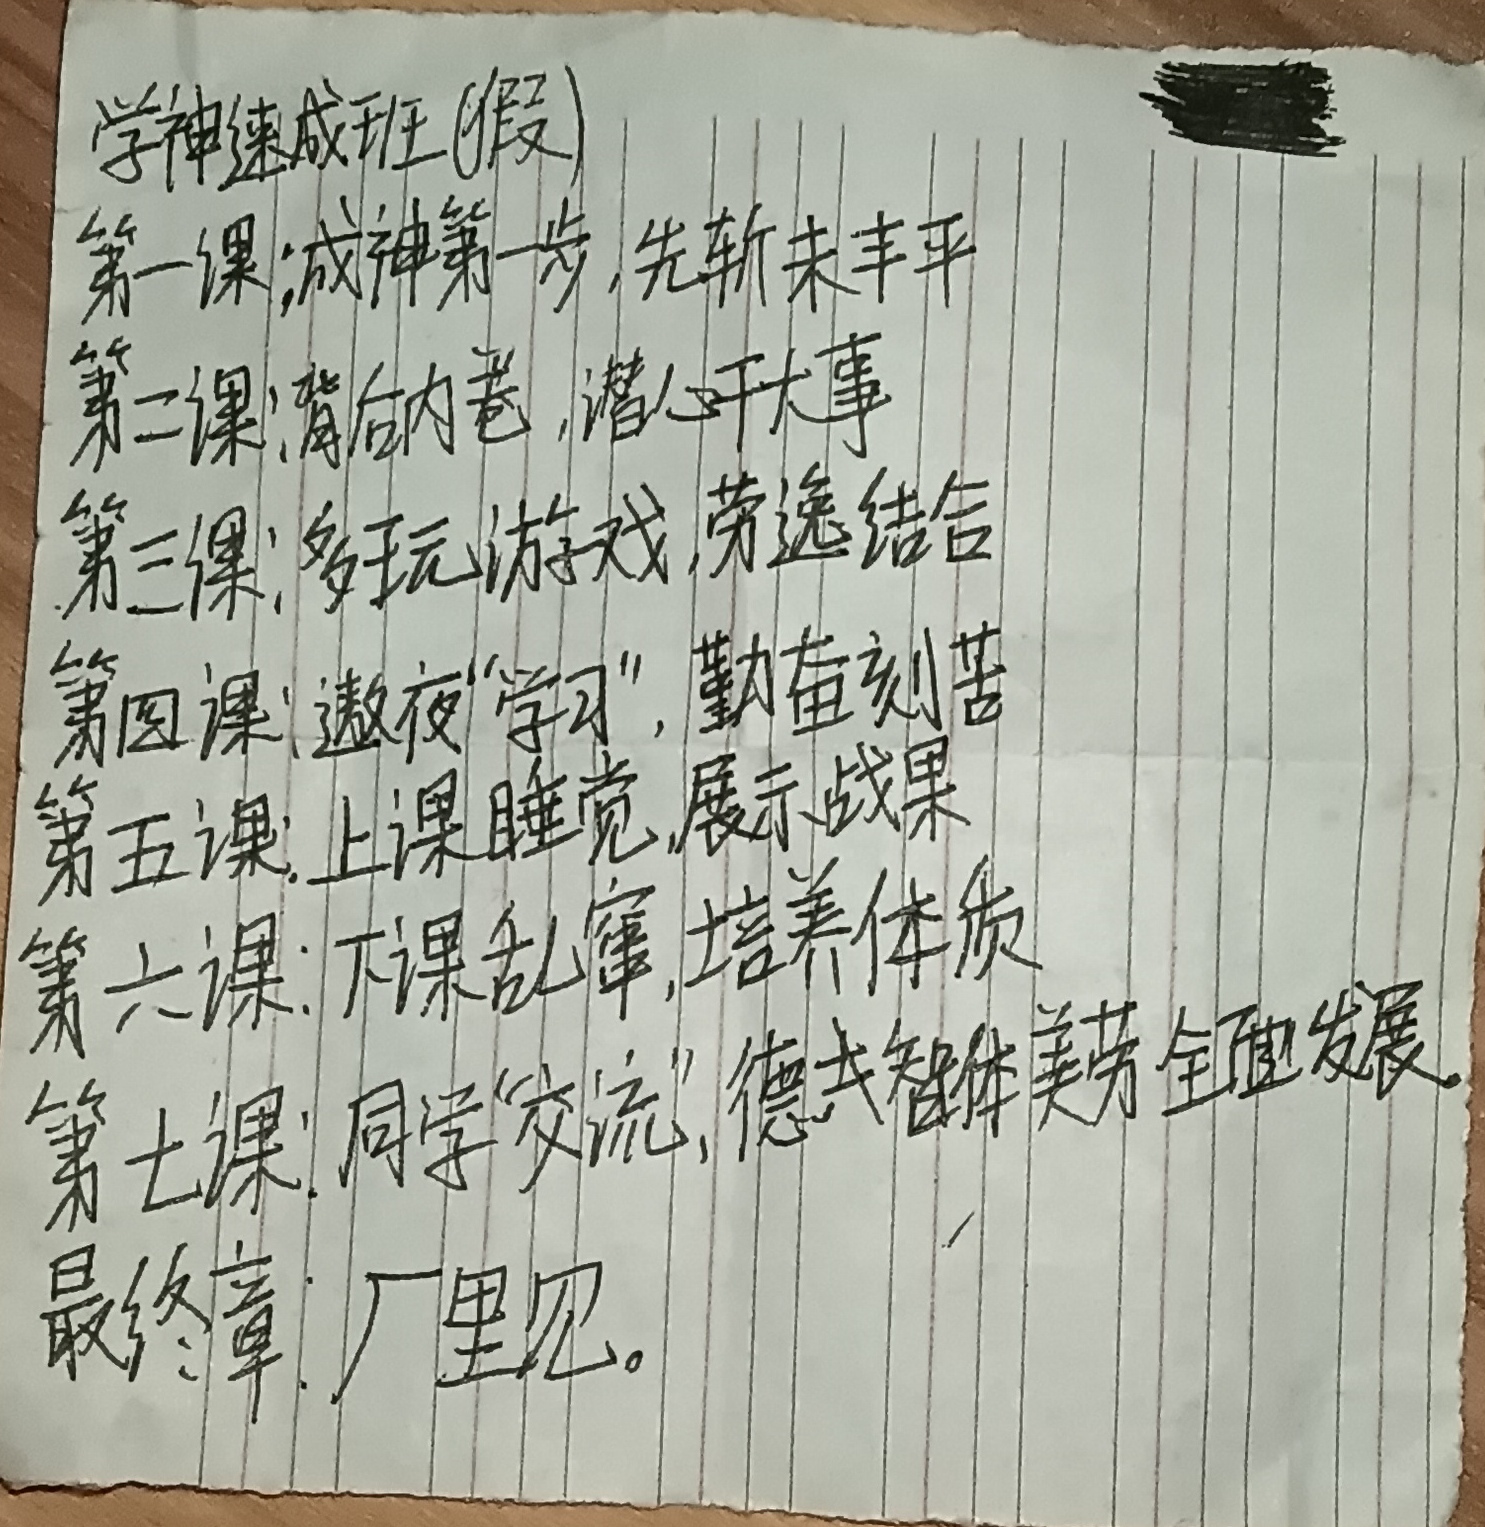 学神速成班(假)
第一课:成神第一步,先斩未丰平
第二课:背后内卷,潜心干大事
第三课:多玩游戏,劳逸结合
第四课:遨夜“学习”,勤奋刻苦
第五课:上课睡觉,展示战果
第六课:下课乱窜,培养体质
第七课:同学“交流”,德式智体美劳全面发展。
最终章:厂里见。